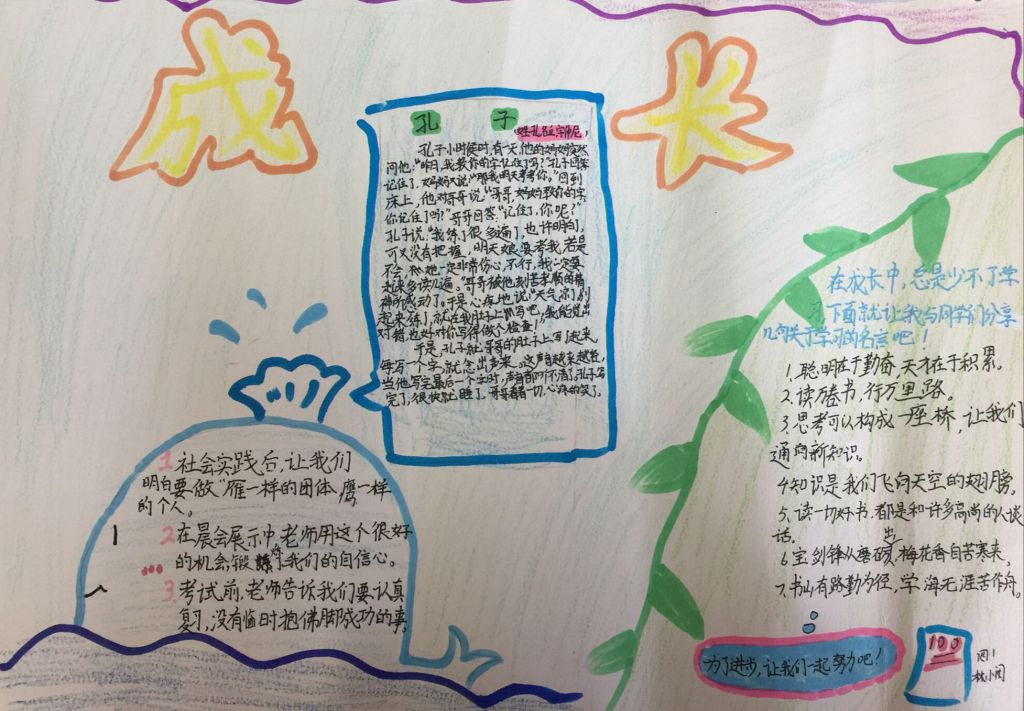 成长
孔子
姓孔名丘字仲尼,
孔子小时候时,有一天他的妈妈突然
问他:"昨日,我教你的字记住了吗?"孔子回答
记住了,妈妈又说:"那我明天考考你。"回到
床上,他对哥哥说:"哥哥,妈妈教你的字,
你记住了吗?"哥哥回答:"记住了,你呢?"
孔子说:"我练了很多遍了,也许明白了,
可又没有把握,明天娘要考我,若是
不会,她一定非常伤心,不行,我一定要
起来多读几遍。"哥哥被他刻苦求学的精
神所感动了。于是心疼地说:"天气凉了,别
起来练了,就在我肚子上写吧,我能觉出
对错,也好对你写得做个检查!"
于是,孔子就在哥哥的肚子上写起来,
每写一个字,就念出声来。这声音越来越低,
当他写完最后一个字时,声音都听不清了,孔子写
完了,很快就睡了。哥哥看着一切,心疼的笑了。
1.社会实践后,让我们
明白要做"雁一样的团体,鹰一样
的个人。
2.在晨会展示中,老师用这个很好
的机会,锻炼了我们的自信心。
3.考试前,老师告诉我们要认真
复习,没有临时抱佛脚成功的事,
在成长中,总是少不了学
习,下面就让我与同学们分享
几句关于学习的名言吧!
1.聪明在于勤奋,天才在于积累。
2.读万卷书,行万里路。
3.思考可以构成一座桥,让我们
通向新知识。
4.知识是我们飞向天空的翅膀,
5、读一切好书,都是和许多高尚的人谈
话。
6.宝剑锋从磨砺出,梅花香自苦寒来,
7.书山有路勤为径,学海无涯苦作舟。
为了进步,让我们一起努力吧!
100